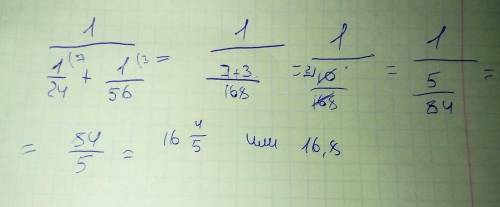 1/(1/24 (7 + 1/56 (3) = 1/((7+3)/168) = 1/(10/168) = 1/(5/84) =
= 84/5 = 16 4/5 или 16,8